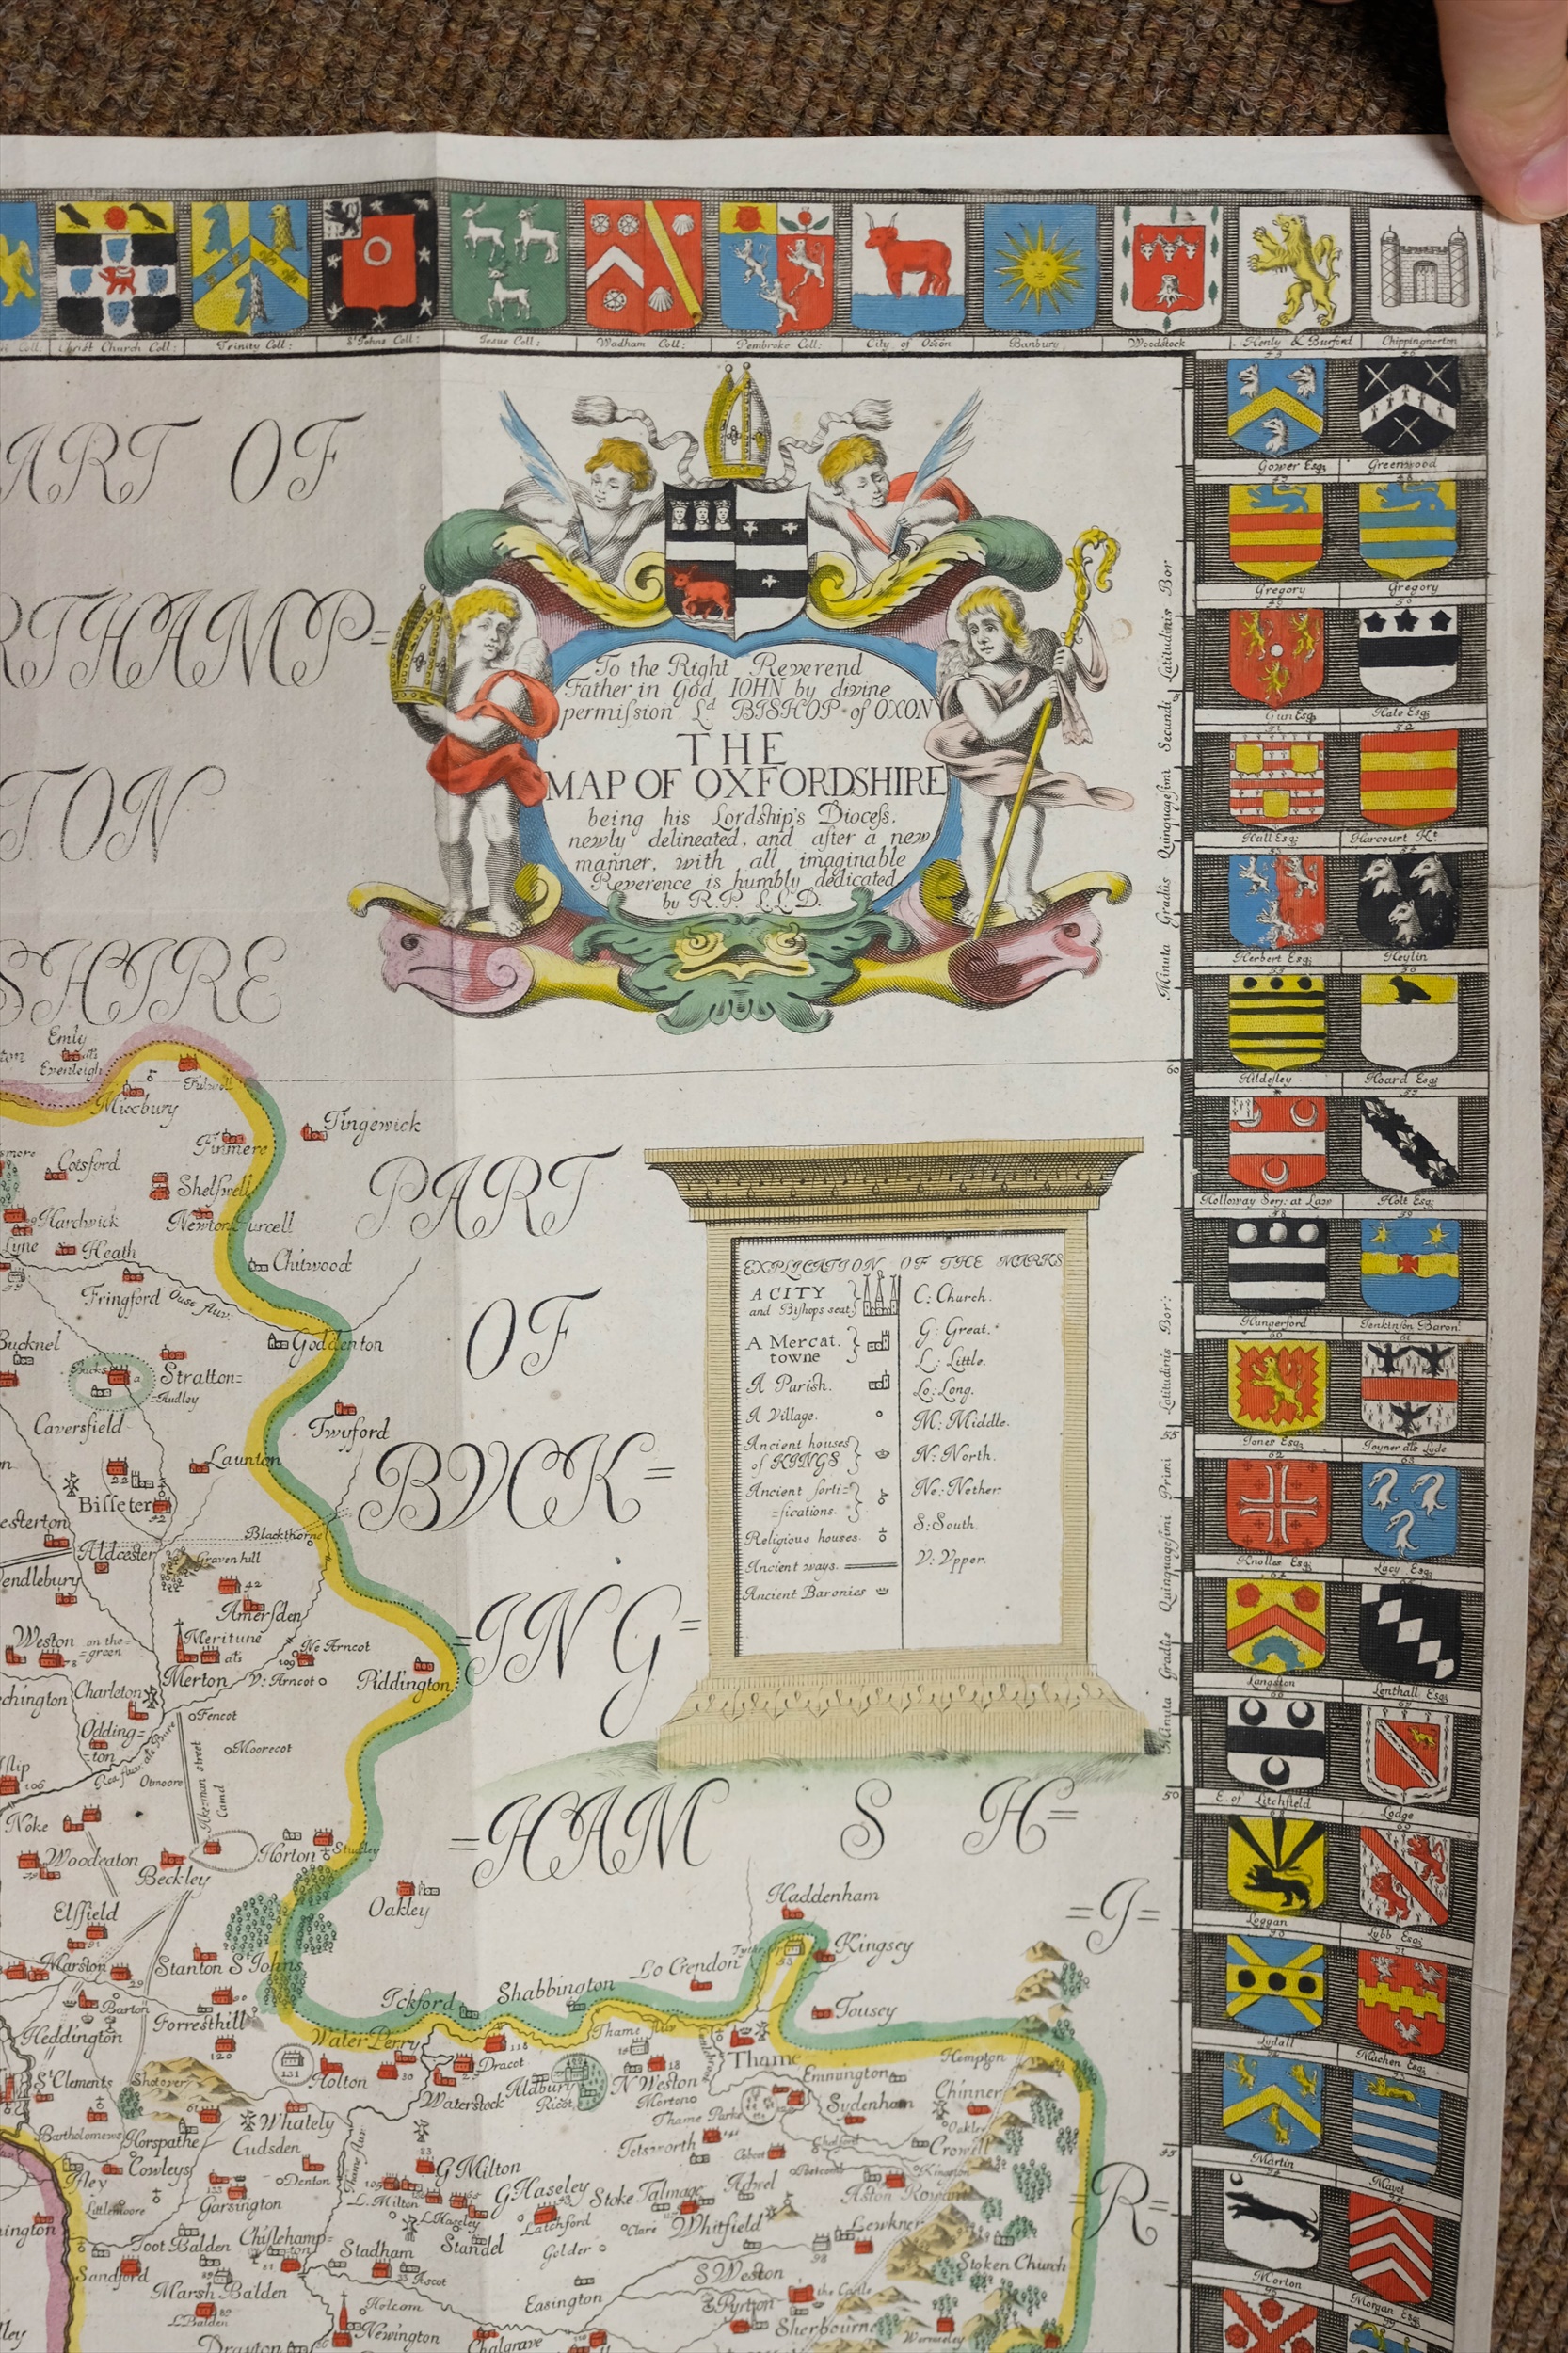 Christ Church Coll:
Trinity Coll:
St Johns Coll:
Jesus Coll:
Wadham Coll:
Pembroke Coll:
City of Oxon
Banbury
Woodstock
Henly & Burford
Chippingnorton
ART OF
RTHAMP=
TON
SHIRE
To the Right Reverend
Father in God IOHN by divine
permiſsion Ld BISHOP of OXON
THE
MAP OF OXFORDSHIRE
being his Lordship's Dioceſs,
newly delineated, and after a new
mañer, with all imaginable
Reverence is humbly dedicated
by R.P. L.L.D.
Gower Esq;
Greenwood
Gregory
Gregory
Gun Esq;
Hale Esq;
Hall Esq;
Harcourt Kt.
Herbert Esq;
Heylin
Hildesley
Hoard Esq;
Holloway Serj: at Law
Holt Esq;
Hungerford
Jenkinson Baront
Jones Esq;
Joyner als Lyde
Knolles Esq;
Lacy Esq;
Langston
Lenthall Esq;
E. of Litchfield
Lodge
Loggan
Lybb Esq;
Lydall
Machen Esq;
Martin
Mayot
Morton
Morgan Esq;
Minuta Gradus Quinquagesimi Secundi Latitudinis Bor
Minuta Gradus Quinquagesimi Primi Latitudinis Bor:
60
55
50
45
PART
OF
BVCK=
=ING=
=HAM S H=
=I=
=R=
EXPLICATION OF THE MARKS
A CITY
and Bishops seat
A Mercat.
towne
A Parish.
A Village.
Ancient houses
of KINGS
Ancient forti=
=fications.
Religious houses.
Ancient ways.
Ancient Baronies
C: Church.
G: Great.
L: Little.
Lo: Long.
M: Middle.
N: North.
Ne: Nether.
S: South.
V: Vpper.
Emly
Evenleigh
Mixbury
Fulwell
Tingewick
Finmere
Cotsford
Shelswell
Hardwick
Newton Purcell
Heath
Chitwood
Fringford
Ouse fluv:
Bucknel
Goddenton
Stratton=
=Audley
Caversfield
Twyford
Launton
Bisseter
Blackthorne
Aldcester
Gravenhill
Amersden
Weston on the=
=green
Meritune
als
Merton
Ne Arncot
V: Arncot
Piddington
Charleton
Fencot
Odding=
=ton
Moorecot
Otmoore
Akeman street
Camd
Noke
Woodeaton
Beckley
Horton
Studley
Oakley
Elsfield
Marston
Stanton St Johns
Barton
Forresthill
Heddington
Haddenham
Kingsey
Lo Crendon
Shabbington
Ickford
Tousey
Water Perry
Thame fluv
Thame
Holton
Dracot
Waterstock
Aldbury
Ricot
N Weston
Moreton
Thame Parke
Emmington
Hempton
Chinner
Sydenham
Oakley
Crowell
Kingston
St Clements
Shotover
Whately
Cudsden
Bartholomews
Horspathe
Cowleys
Ifley
Denton
Garsington
Littlemoore
Tetsworth
G Milton
L. Milton
G Haseley
L Haseley
Latchford
Stoke Talmage
Adwel
Aston Rowant
Clare
Whitfield
Lewkner
Golder
Toot Balden
Chislehamp=
=ton
Stadham
Standel
Ascot
Sandford
Marsh Balden
L. Balden
Holcom
Easington
S Weston
Stoken Church
Pyrton
the Castle
Sherbourne
Wormesley
Drayton
Newington
Chalgrave